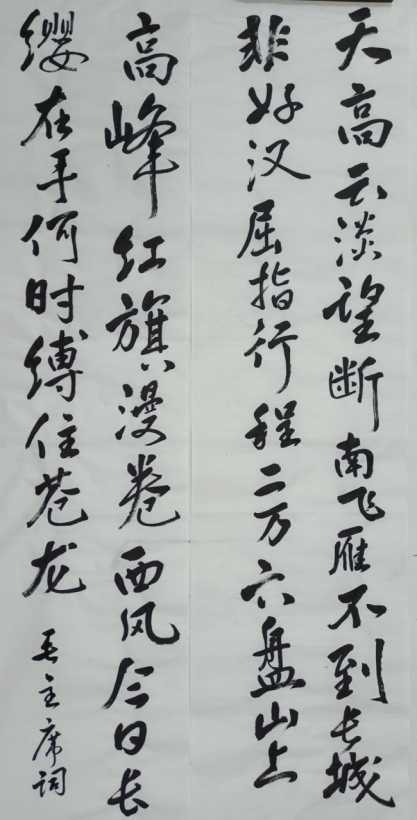 天高云淡望断南飞雁不到长城
非好汉屈指行程二万六盘山上
高峰红旗漫卷西风今日长
缨在手何时缚住苍龙
毛主席词